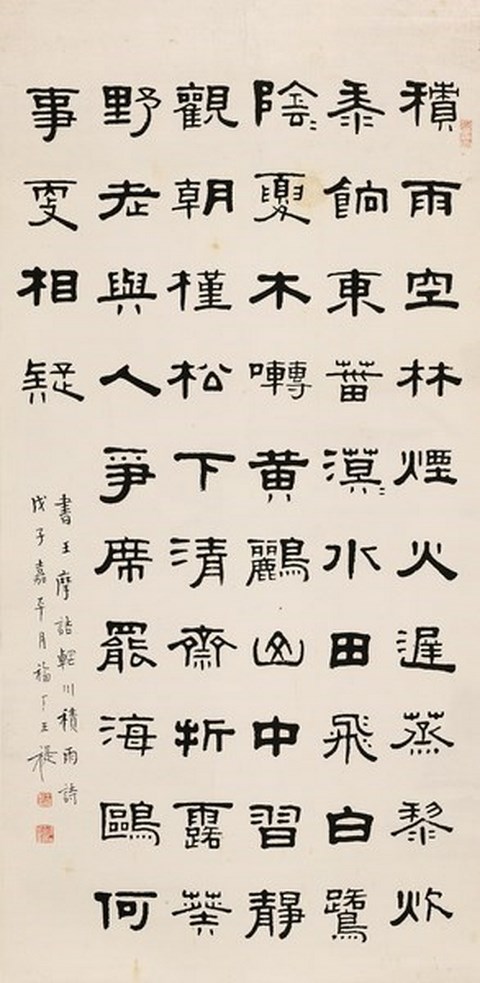 積雨空林煙火遲蒸黎炊
黍餉東菑漠〻水田飛白鷺
陰〻夏木囀黃鸝山中習靜
觀朝槿松下清齋折露葵
野老與人爭席罷海鷗何
事更相疑
書王摩詰輞川積雨詩
戊子嘉平月福厂王禔